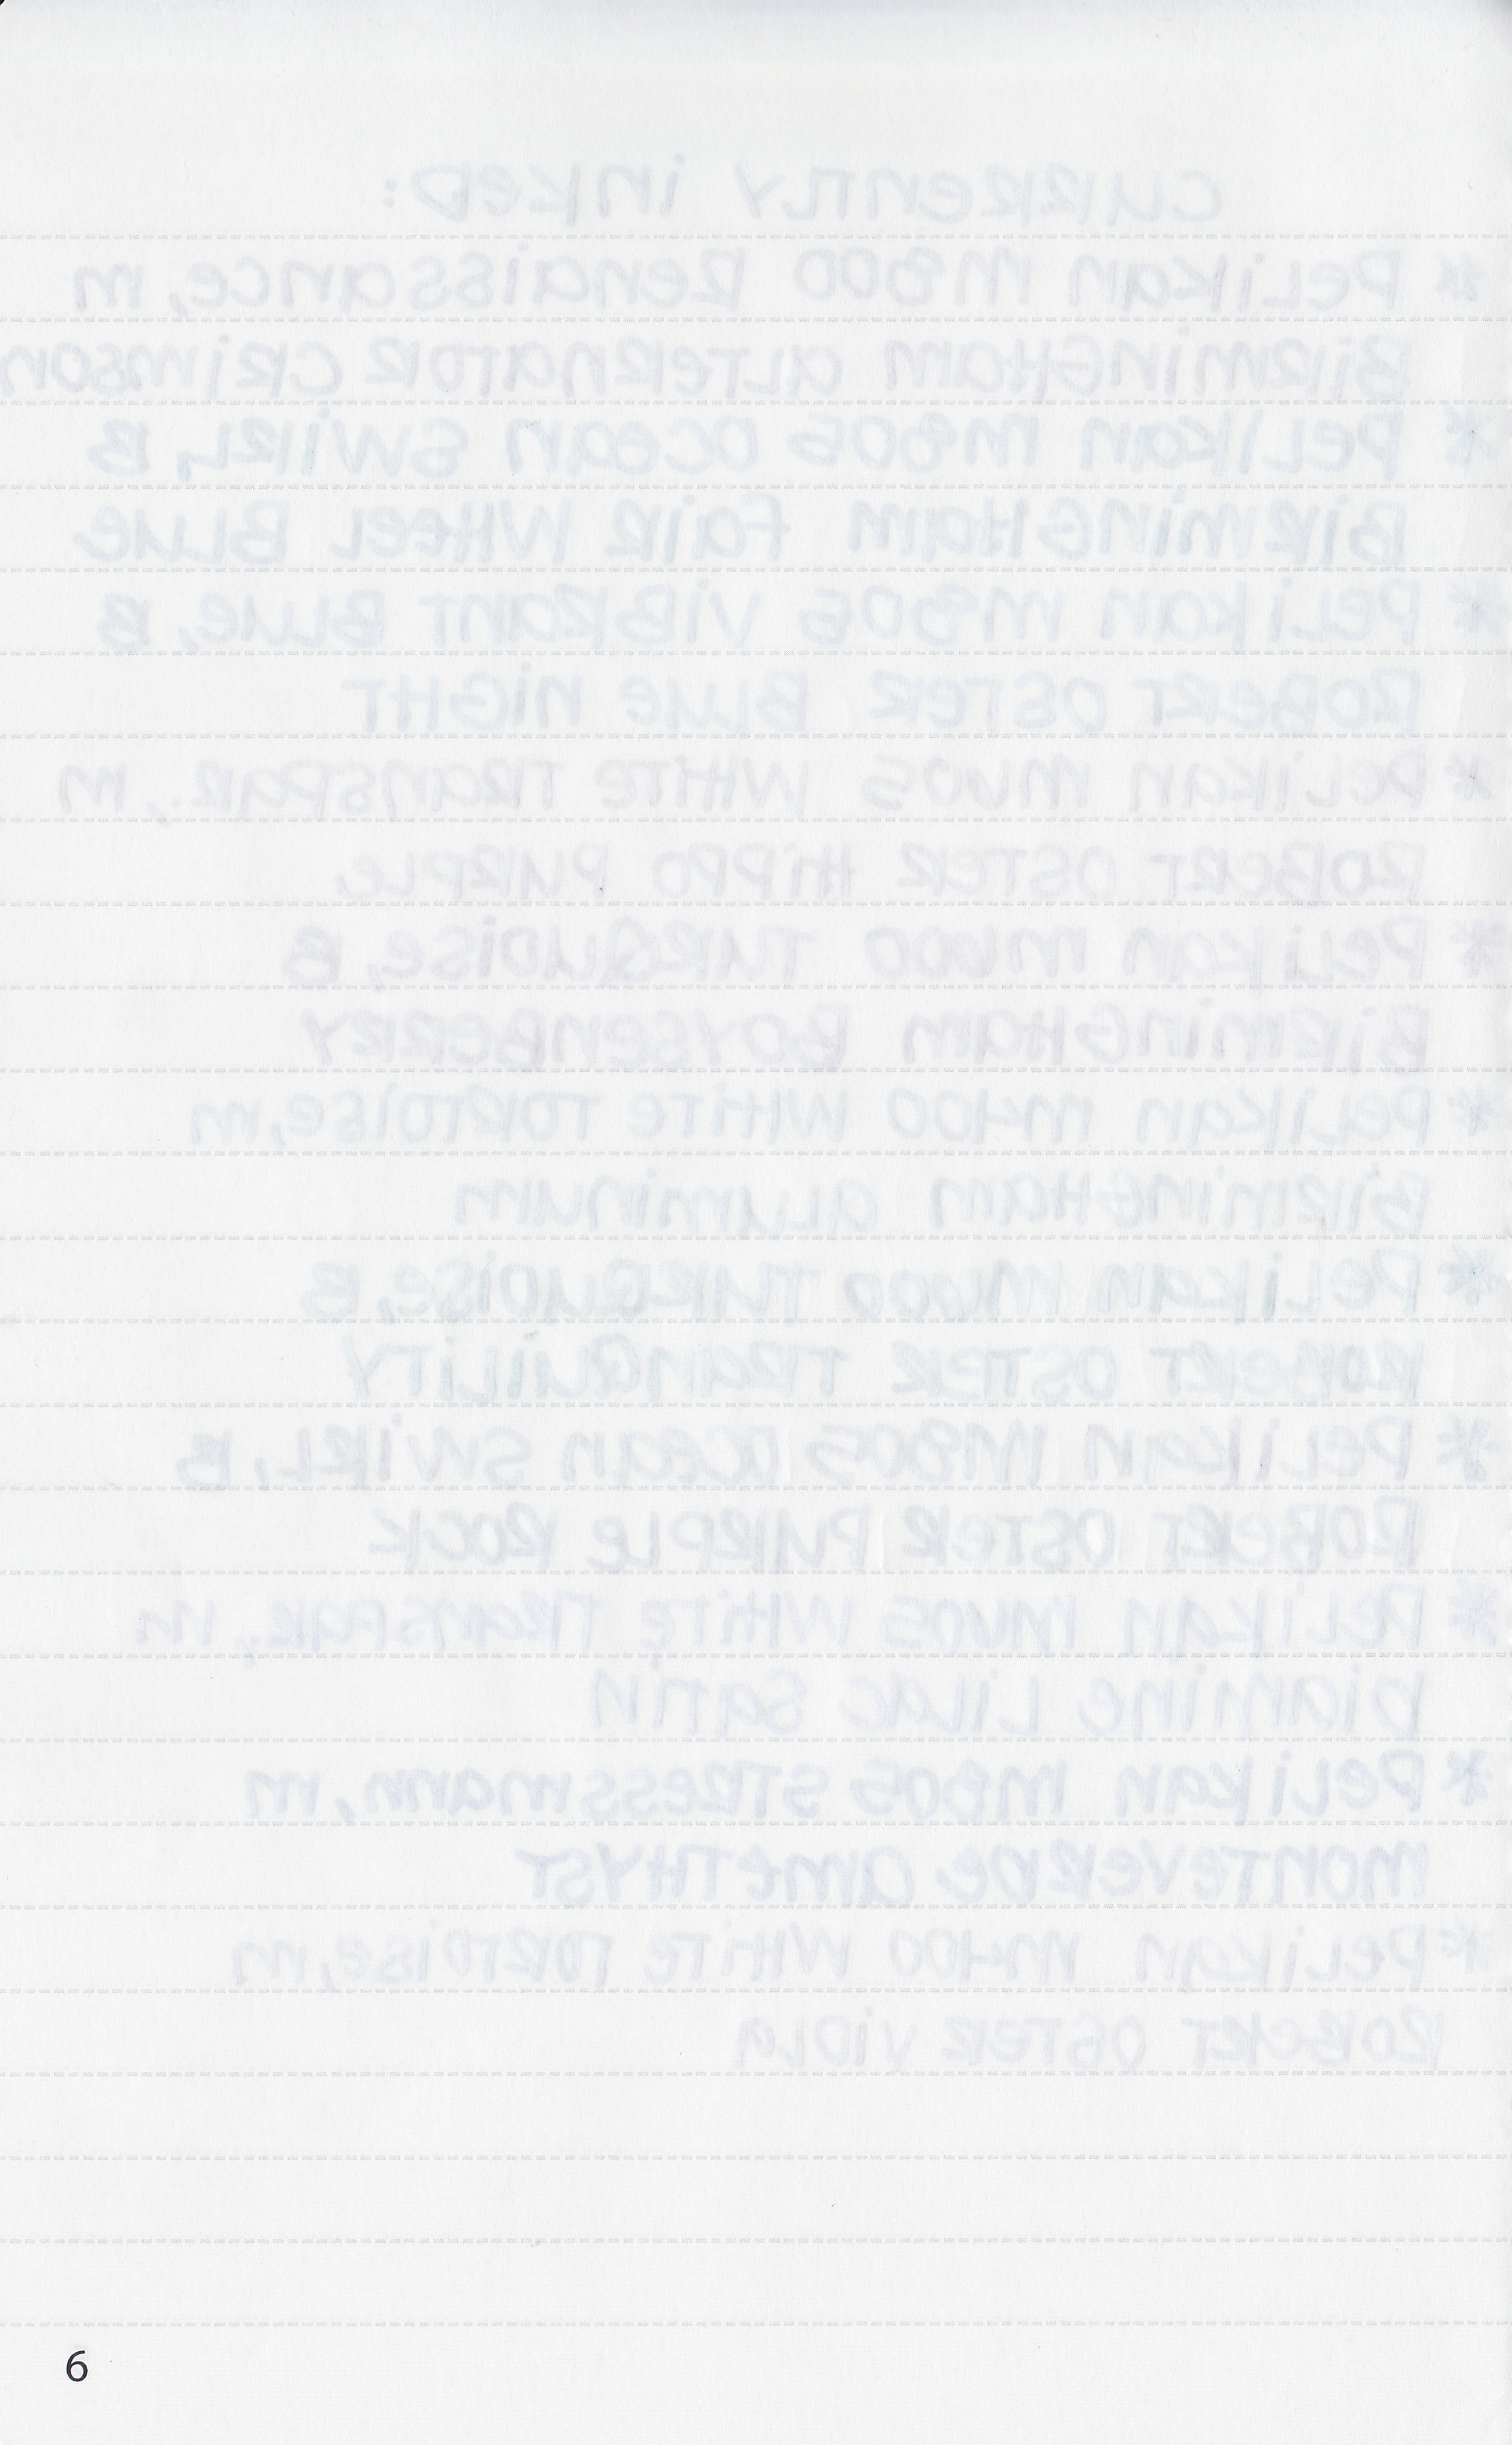 CURRENTLY INKED:
* PELIKAN M800 RENAISSANCE, M
BIRMINGHAM ALTERNATOR CRIMSON
* PELIKAN M805 OCEAN SWIRL, B
BIRMINGHAM FAIR WHEEL BLUE
* PELIKAN M805 VIBRANT BLUE, B
ROBERT OSTER BLUE NIGHT
* PELIKAN M605 WHITE TRANSPAR., M
ROBERT OSTER HIPPO PURPLE
* PELIKAN M600 TURQUOISE, B
BIRMINGHAM BOYSENBERRY
* PELIKAN M400 WHITE TORTOISE, M
BIRMINGHAM ALUMINUM
* PELIKAN M600 TURQUOISE, B
ROBERT OSTER TRANQUILITY
* PELIKAN M805 OCEAN SWIRL, B
ROBERT OSTER PURPLE ROCK
* PELIKAN M605 WHITE TRANSPAR, M
DIAMINE LILAC SATIN
* PELIKAN M805 STRESSMANN, M
MONTEVERDE AMETHYST
* PELIKAN M400 WHITE TORTOISE, M
ROBERT OSTER VIOLA
6